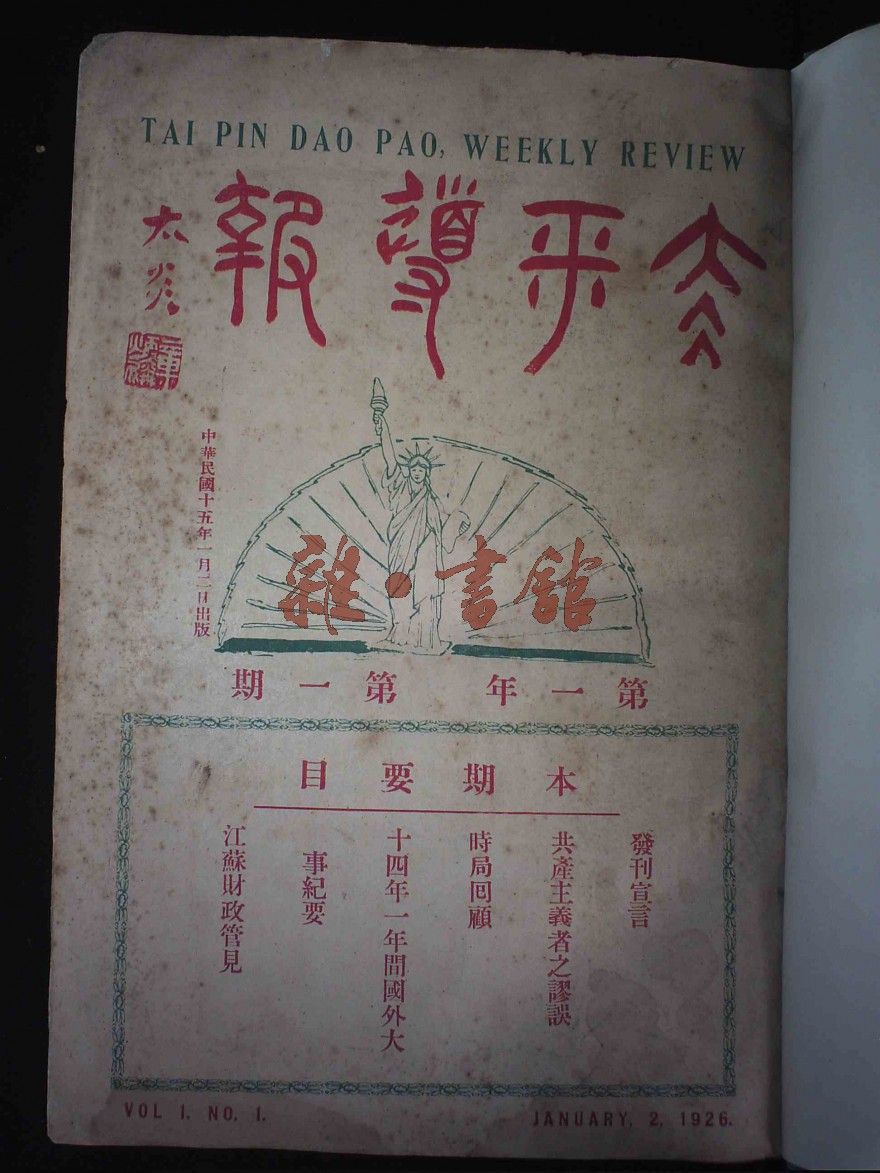 TAI PIN DAO PAO, WEEKLY REVIEW
太平導報
太炎
中華民國十五年一月二日出版
雜·書館
第一年 第一期
本期要目
發刊宣言
共產主義者之謬誤
時局回顧
十四年一年間國外大
事紀要
江蘇財政管見
VOL 1. NO. 1.
JANUARY, 2, 1926.